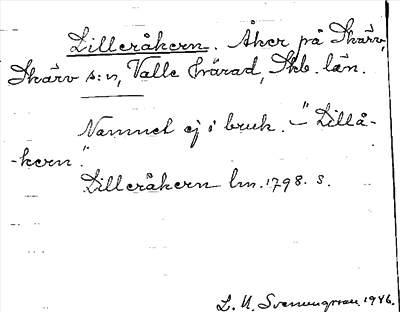 Lilleråkern. Åker på Skärv,
Skärv s:n, Valle härad, Skb. län.
Namnet ej i bruk. – "Lillå-
-kern".
Lilleråkern lm. 1798. s.
L. U. Svenungsson 1946.